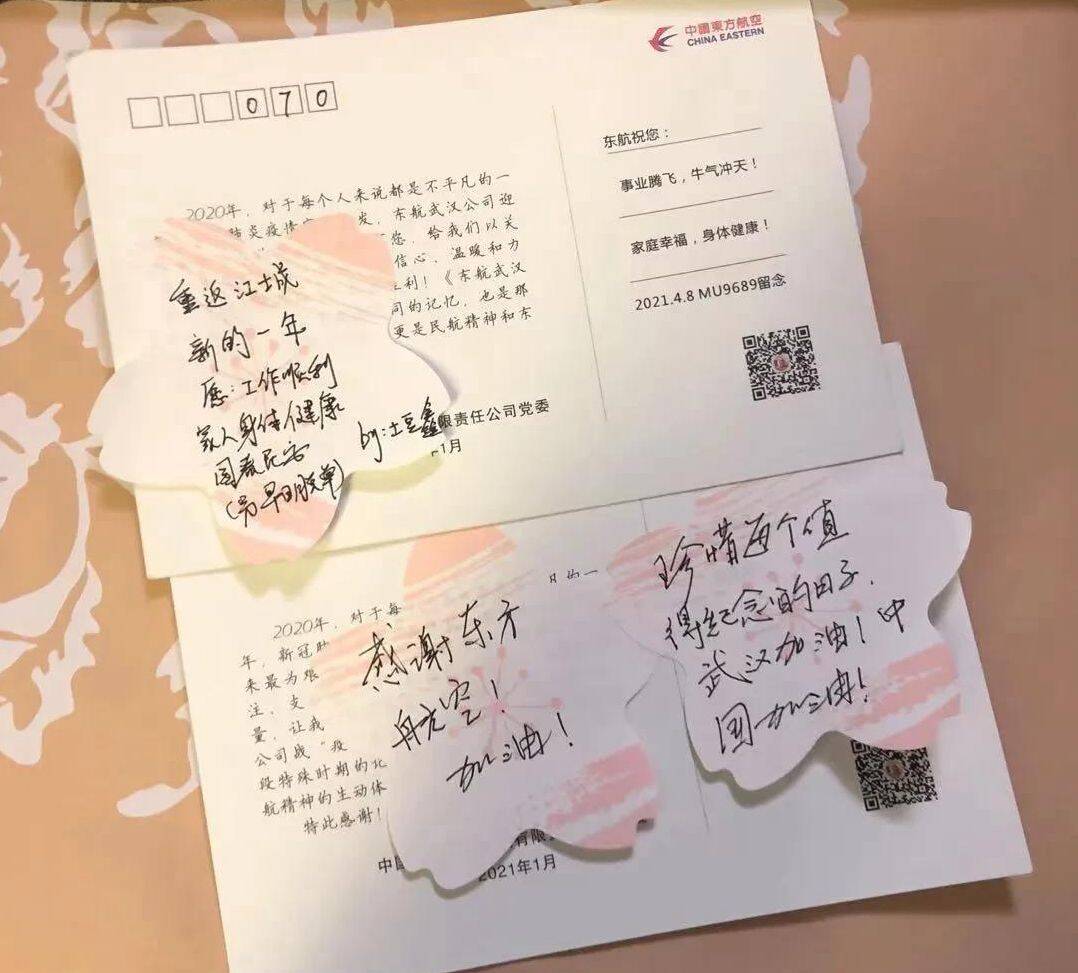 中國東方航空
CHINA EASTERN
0 7 0
2020年，对于每个人来说都是不平凡的一
肺炎疫情
发，东航武汉公司迎
您，给我们以关
信心、温暖和力
利！《东航武汉
同的记忆，也是那
更是民航精神和东
限责任公司党委
1月
重返江城
新的一年
愿：工作顺利
家人身体健康
国泰民安
(另早日脱单)
by:土豆鑫
东航祝您：
事业腾飞，牛气冲天！
家庭幸福，身体健康！
2021.4.8 MU9689留念
2020年，对于每
年，新冠肺
来最为艰
注、支
量，让我
公司战“疫
段特殊时期的
航精神的生动体
特此感谢！
的一
中国
有限
2021年1月
感谢东方
航空！
加油！
珍惜每个值
得纪念的日子.
武汉加油！中
国加油！